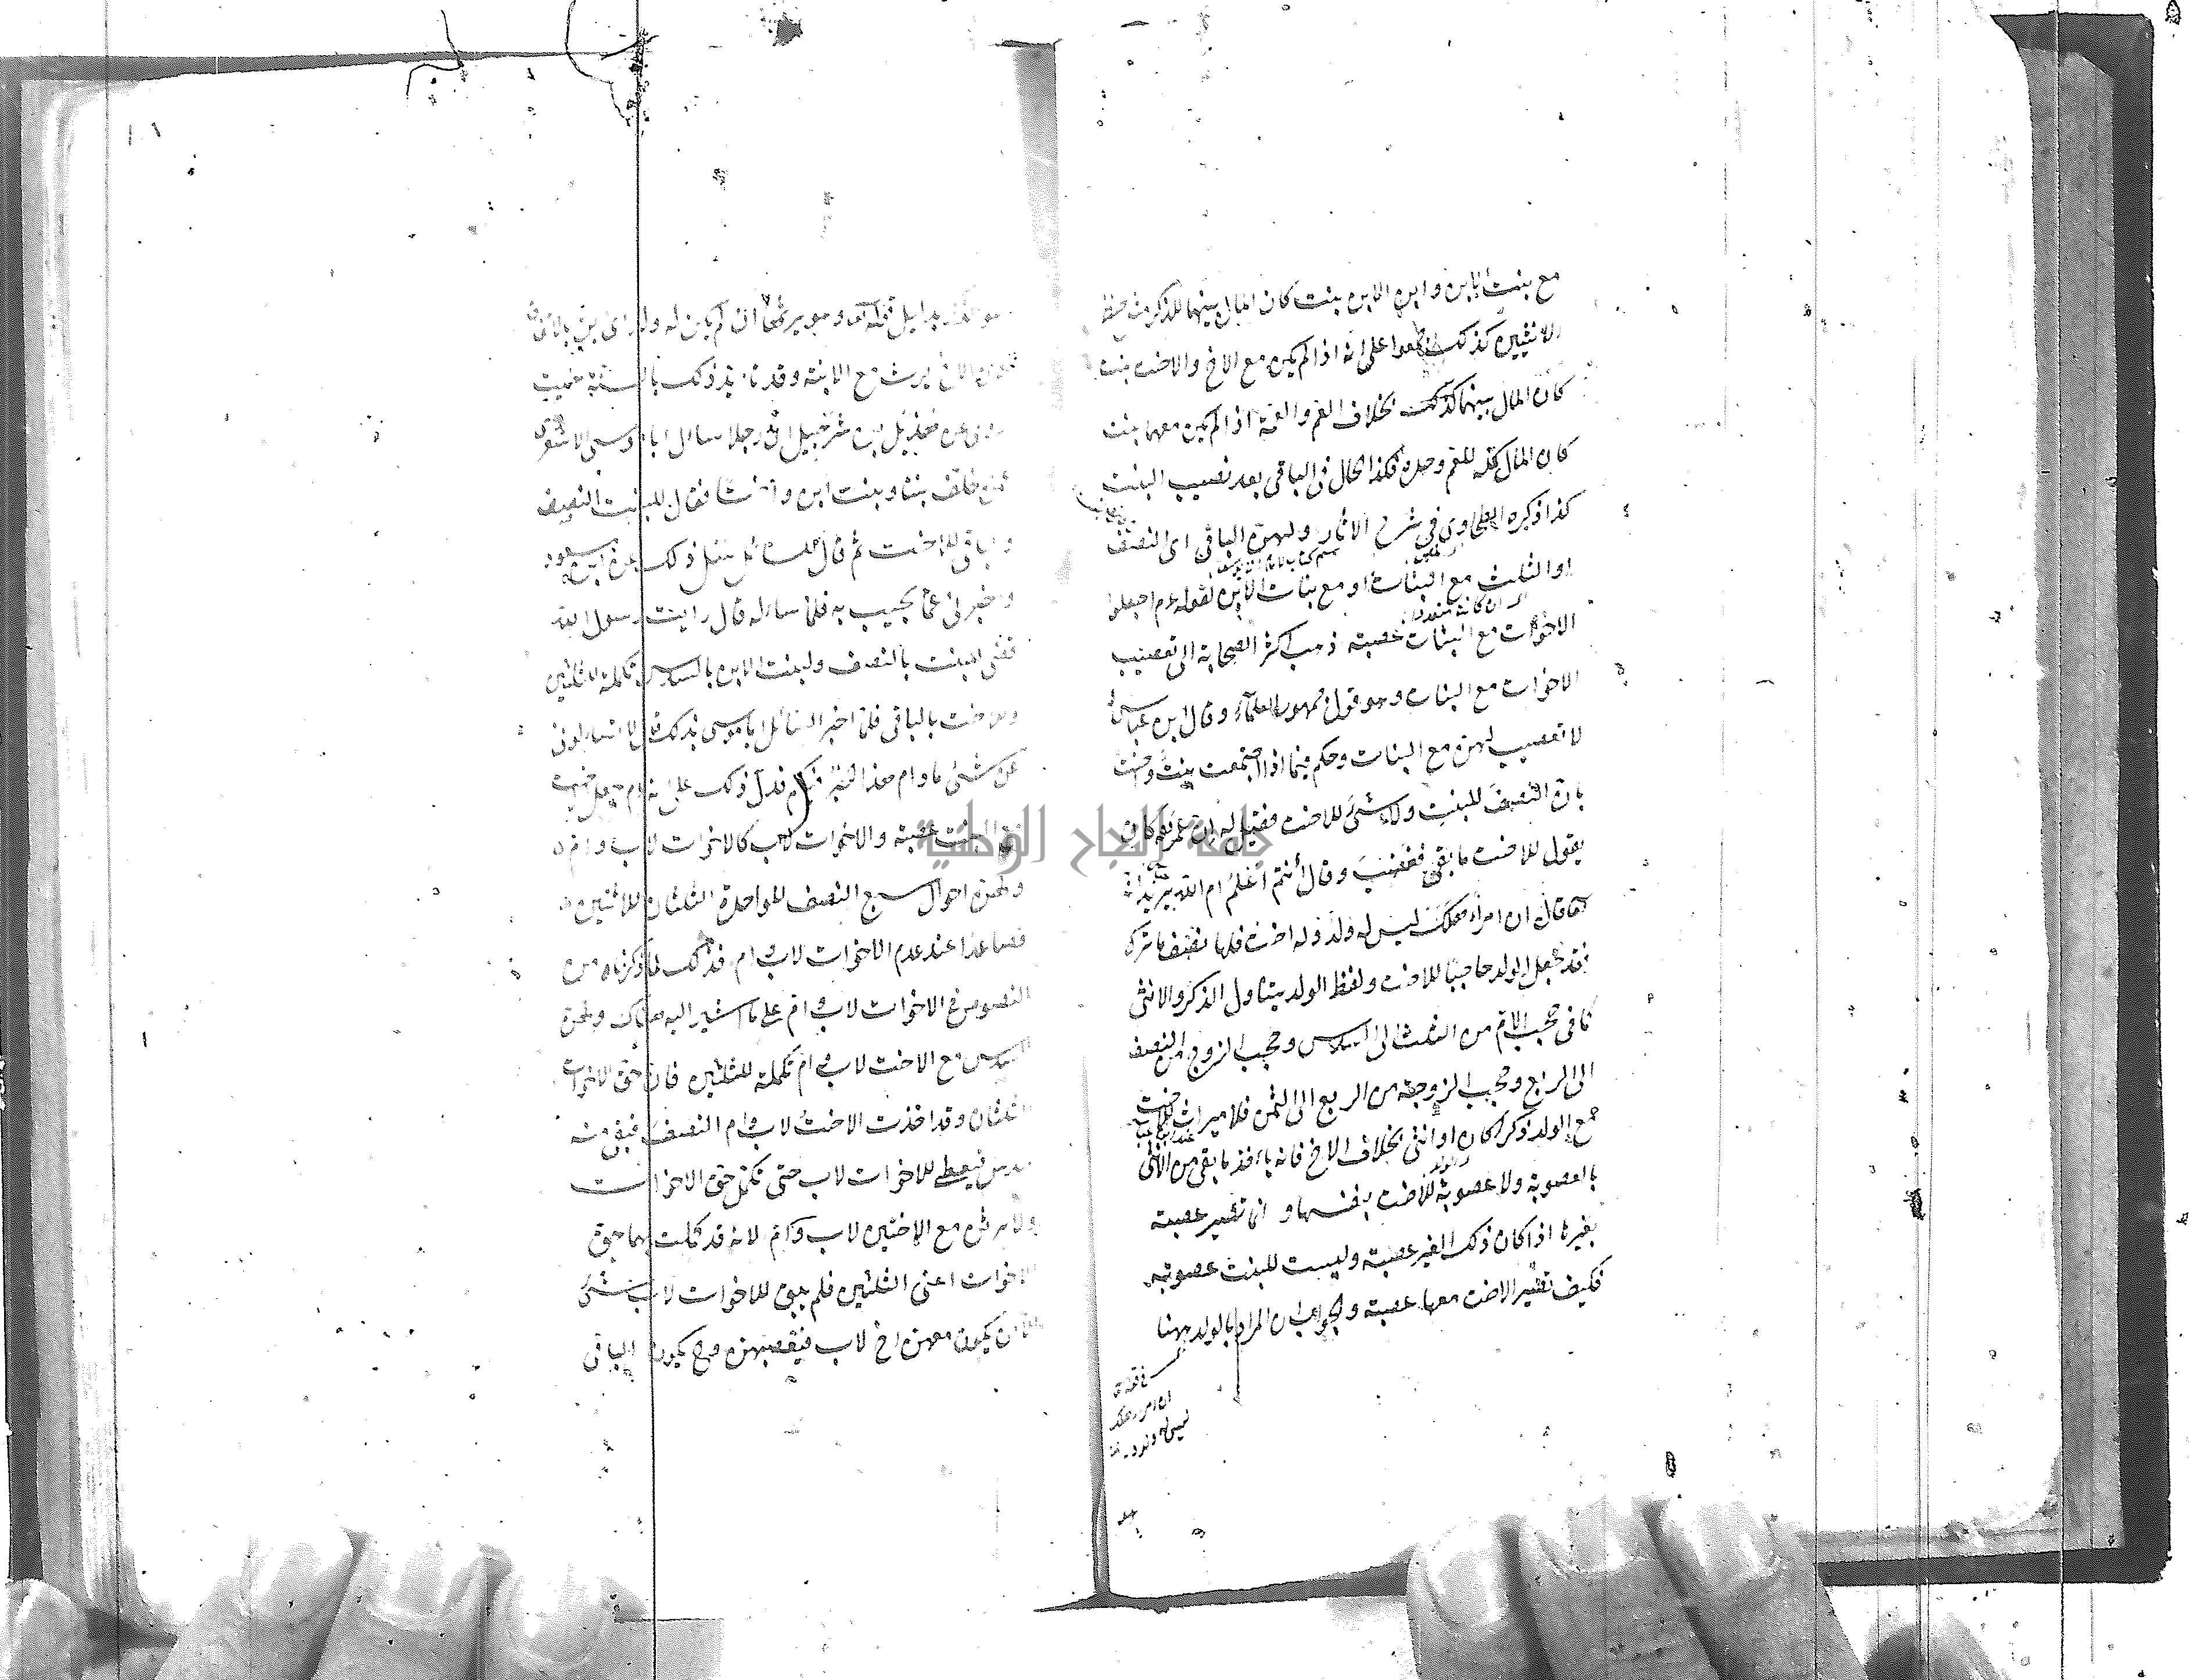 مع بنت الابن وابن الابن بنت كان المال بينهما للذكر مثل حظ
الانثيين كذلك على انه اذا لم يكن مع الاخ والاخت بنت
كان المال بينهما كذلك بخلاف العم والعمة اذا لم يكن معهما بنت
كان المال كله للعم وحده فكذا الحال فى الباقى بعد نصيب البنت
كذا ذكره الطحاوى فى شرح الاثار ولهن الباقى اى النصف
او الثلث مع البنات او مع بنات الابن لقوله عم اجعلوا
الاخوات مع البنات عصبة ذهب اكثر الصحابة الى تعصيب
الاخوات مع البنات وهو قول جمهور العلماء وقال ابن عباس
لا تعصيب لهن مع البنات وحكم فيما اذا اجتمعت بنت واخت
بان النصف للبنت ولا شئ للاخت فقيل له ان عمر كان
يقول للاخت ما بقى فغضب وقال أنتم أعلم ام الله
قال ان امرؤ هلك ليس له ولد وله اخت فلها نصف ما ترك
فقد جعل الولد حاجبا للاخت ولفظ الولد يتناول الذكر والانثى
كما فى حجب الام من الثلث الى السدس وحجب الزوج من النصف
الى الربع وحجب الزوجة من الربع الى الثمن فلا ميراث للاخت
مع الولد ذكرا كان او انثى بخلاف الاخ فانه ياخذ ما بقى من الانثى
بالعصوبة ولا عصوبة للاخت بنفسها و انما تصير عصبة
بغيرها اذا كان ذلك الغير عصبة وليست للبنت عصوبة
فكيف تصير الاخت معها عصبة والجواب ان المراد بالولد ههنا
هو الذكر بدليل قوله تعالى وهو يرثها ان لم يكن له ولد اى ابن بالاتفاق
الاخ يرث مع الابنة وقد تايد ذلك بالسنة حيث
روى عن هذيل بن شرحبيل ان رجلا سال ابا موسى الاشعرى
عمن خلف بنتا وبنت ابن واختا فقال للبنت النصف
والباقى للاخت ثم قال للسائل سل ذلك عن ابن مسعود
واخبرنى عما يجيب به فلما ساله قال رايت رسول الله
قضى للبنت بالنصف ولبنت الابن بالسدس تكملة للثلثين
وللاخت بالباقى فلما اخبر السائل ابا موسى بذلك قال لا تسالونى
عن شئ ما دام هذا الحبر فيكم فدل ذلك على انه عم جعل الاخت
مع البنت عصبة والاخوات لاب كالاخوات لاب وام
ولهن احوال سبع النصف للواحدة الثلثان للاثنين
فصاعدا عند عدم الاخوات لاب وام فذلك لما ذكرناه من
النصوص فى الاخوات لاب وام على ما اشير اليه هناك ولهن
السدس مع الاخت لاب وام تكملة للثلثين فان حق الاخوات
الثلثان وقد اخذت الاخت لاب وام النصف فبقى منه
سدس فيعطى للاخوات لاب حتى تكمل حق الاخوات
ولا يرثن مع الاختين لاب وام لانه قد كملت بهما حق
الاخوات اعنى الثلثين فلم يبق للاخوات لاب شئ
الا ان يكون معهن اخ لاب فيعصبهن وح يكون الباقى
جامعة النجاح الوطنية